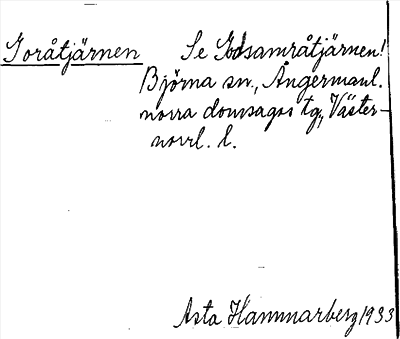 Goråtjärnen Se Godsamråtjärnen!
Björna sn., Ångermanl.
norra domsagas tg., Väster-
norrl. l.
Asta Hammarberg 1933